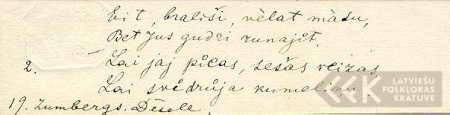 Eit, brališi, vēlat māsu,
Bet jus gudri runajit,
2. Lai jaj pīcas, sešas reizas
Lai svēdrūja kumeliņu
19. Zumbergs. Dīsele.
LATVIEŠU
FOLKLORAS
KRĀTUVE